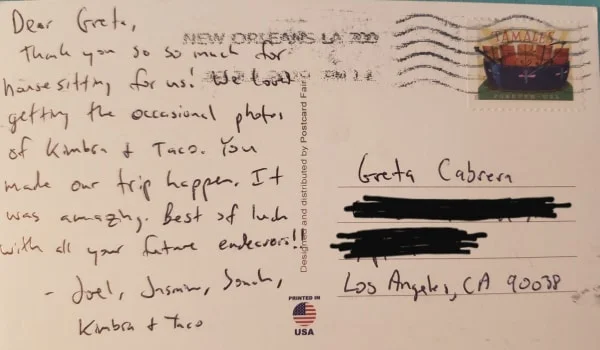 Dear Greta,
Thank you so so much for
house sitting for us! We loved
getting the occasional photos
of Kimbra & Taco. You
made our trip happen. It
was amazing. Best of luck
with all your future endeavors!!
- Joel, Jasmine, Jonah,
Kimbra & Taco
NEW ORLEANS LA 700
TAMALES
FOREVER USA
Designed and distributed by Postcard Fair
PRINTED IN
USA
Greta Cabrera
Los Angeles, CA 90038